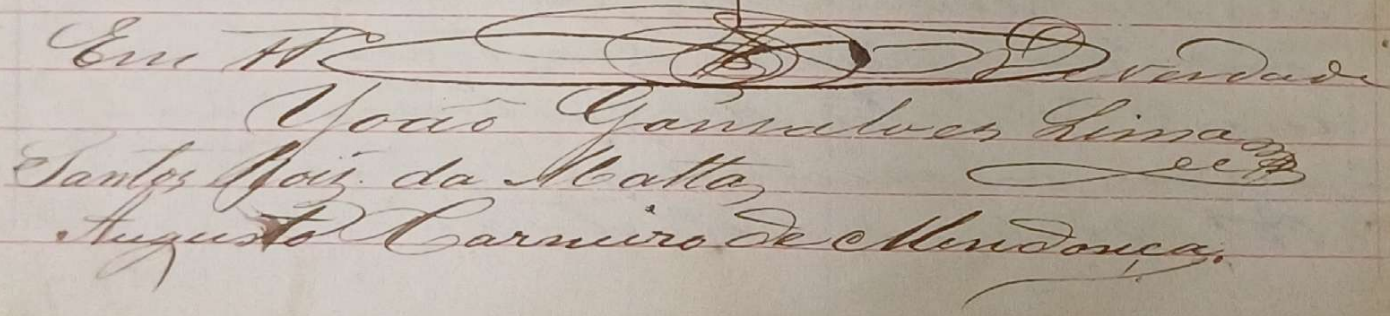 Em Tº de verdade
João Gonsalves Lima
Santos Roiz da Matta
Augusto Carneiro de Mendonça.